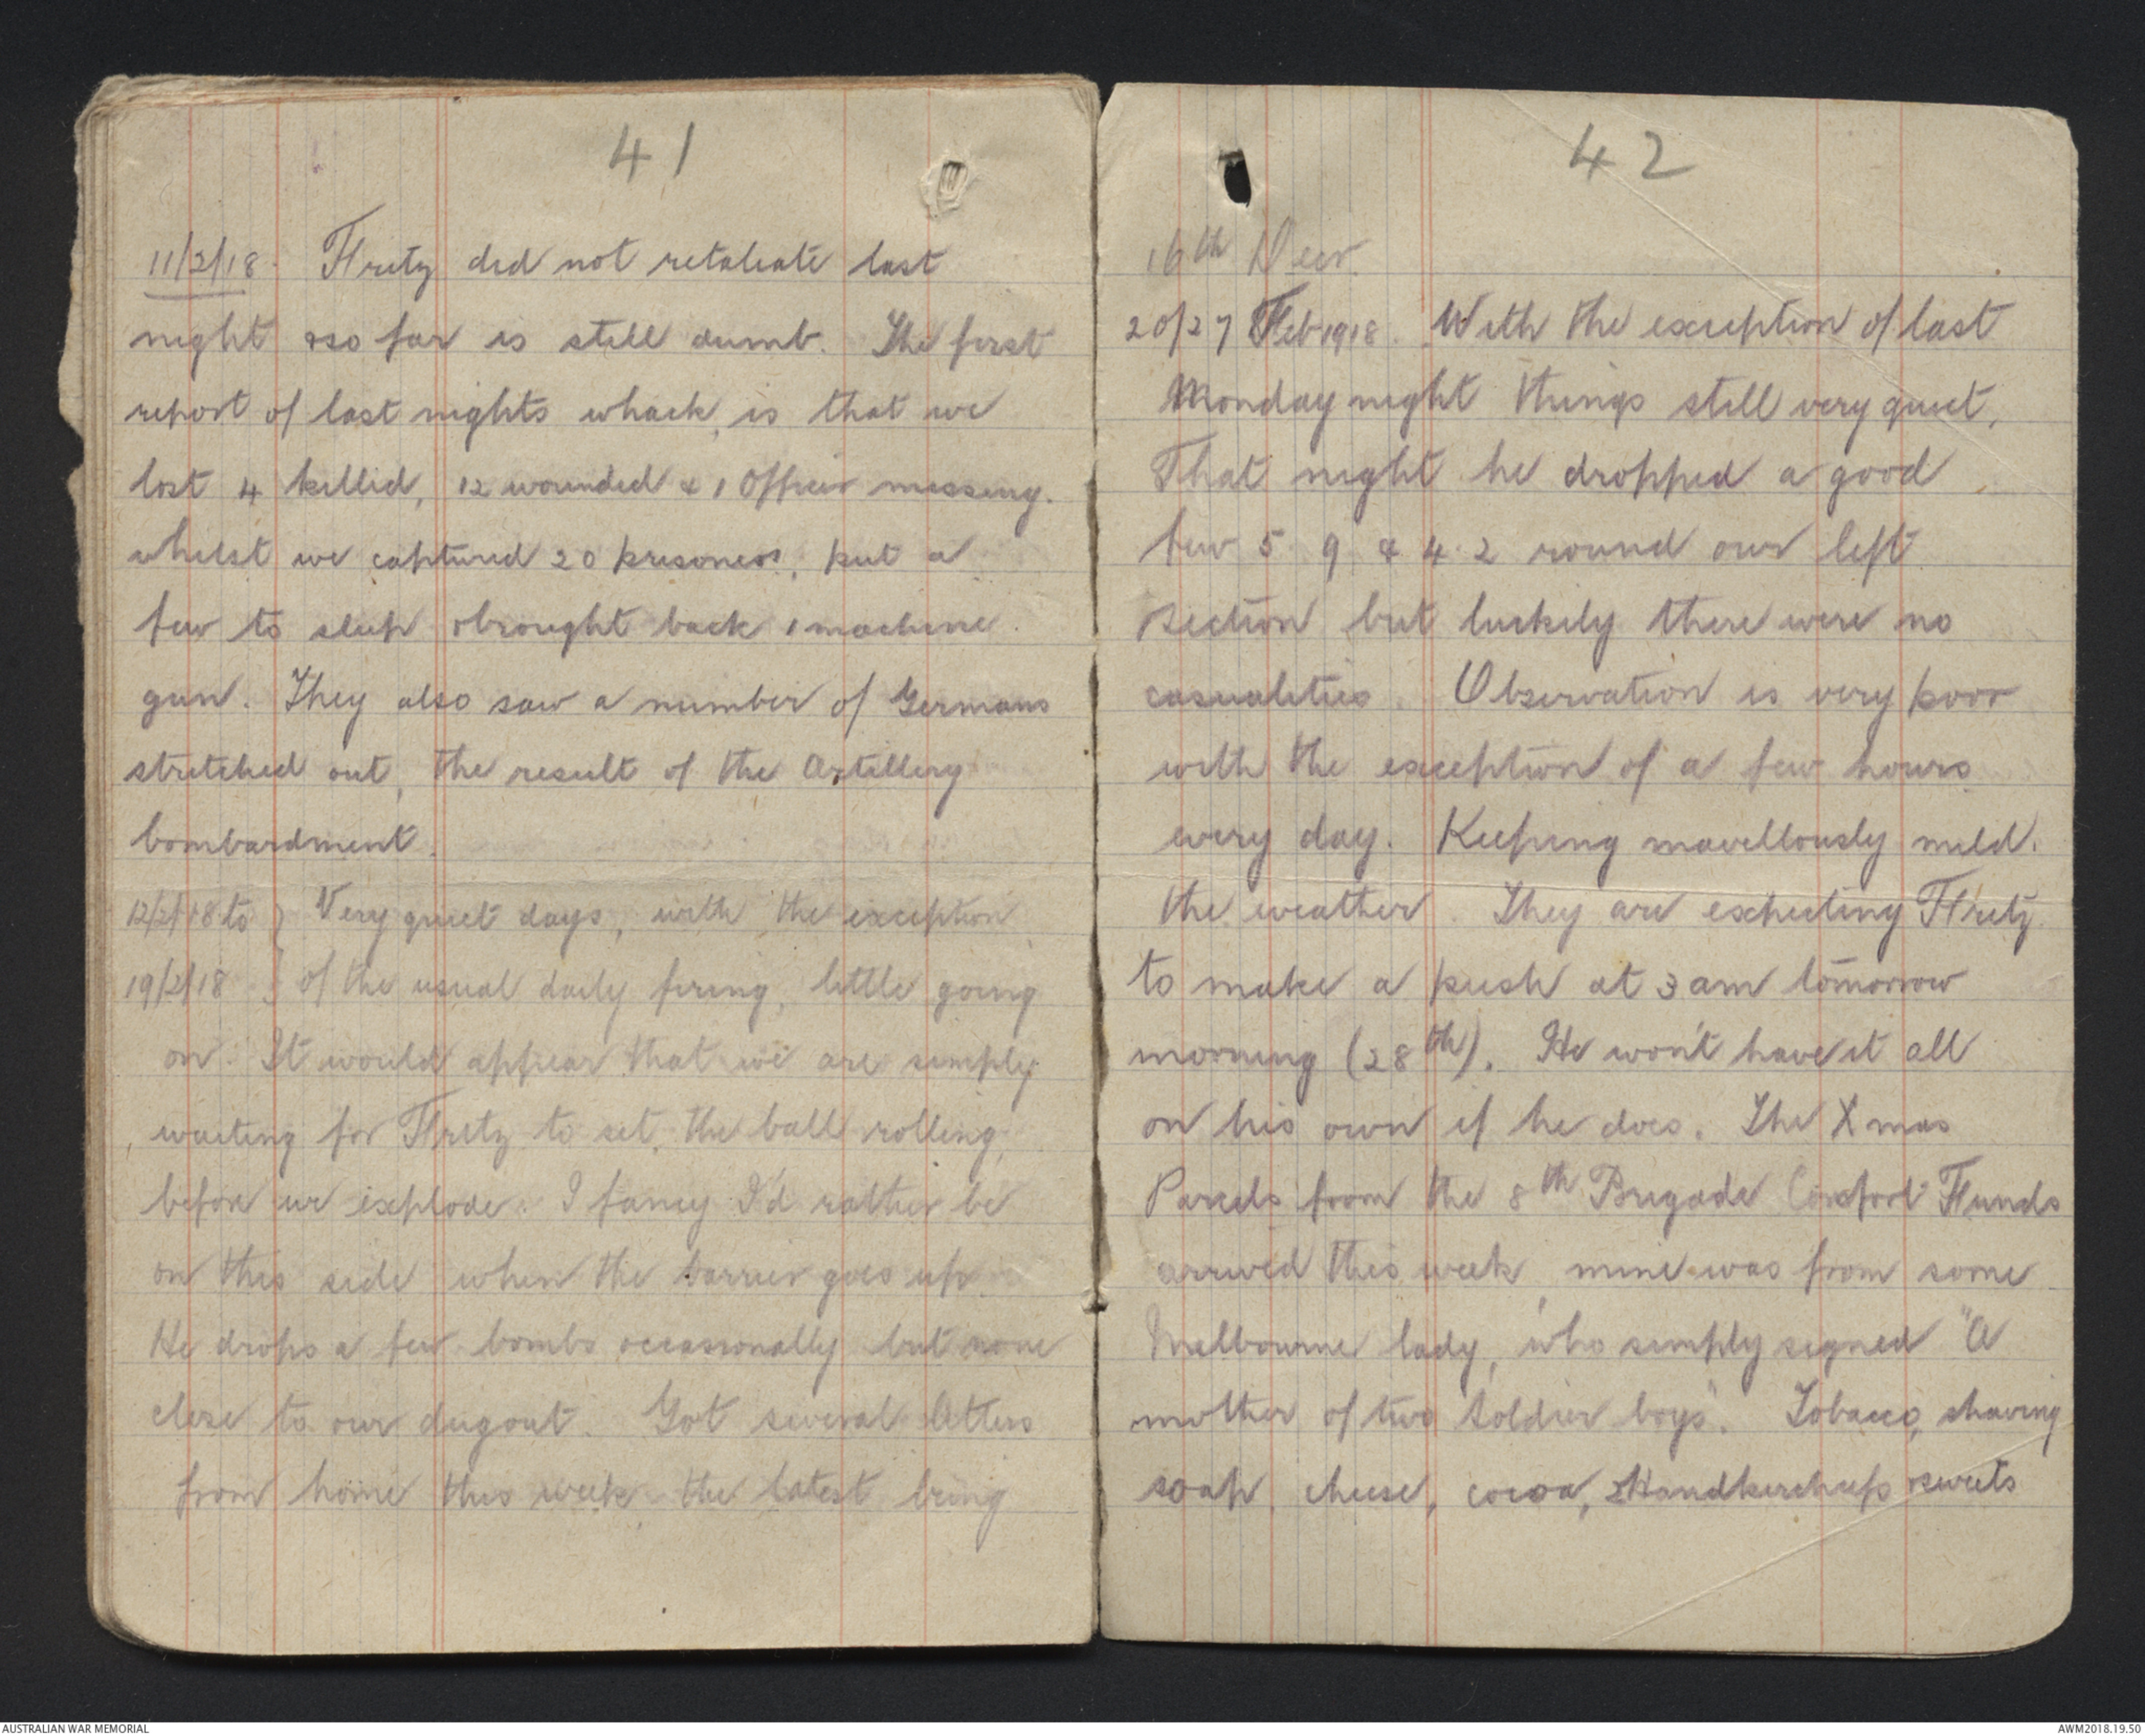 41
11/2/18. Fritz did not retaliate last
night & so far is still dumb. The first
report of last nights whack, is that we
lost 4 killed, 12 wounded & 1 Officer missing.
whilst we captured 20 prisoners, put a
few to sleep & brought back 1 machine
gun. They also saw a number of Germans
stretched out, the result of the Artillery
bombardment.
12/2/18 to } Very quiet days, with the exception
19/2/18 } of the usual daily firing, little going
on. It would appear that we are simply
waiting for Fritz to set the ball rolling,
before we explode. I fancy I'd rather be
on this side when the barrier goes up.
He drops a few bombs occassionally but none
close to our dugout. Got several letters
from home this week, the latest being
42
16th Decr.
20/27 Feb 1918. With the exception of last
Monday night things still very quiet,
That night he dropped a good
few 5.9 & 4.2 round our left
section but luckily there were no
casualities. Observation is very poor
with the exception of a few hours
every day. Keeping mavellously mild.
the weather. They are expecting Fritz
to make a push at 3 am tomorrow
morning (28th). He won't have it all
on his own if he does. The Xmas
Parcels from the 8th Brigade Comfort Funds
arrived this week, mine was from some
Melbourne lady, who simply signed "A
mother of two soldier boys". Tobacco, shaving
soap, cheese, cocoa, 2 Handkerchiefs & sweets
AUSTRALIAN WAR MEMORIAL
AWM2018.19.50